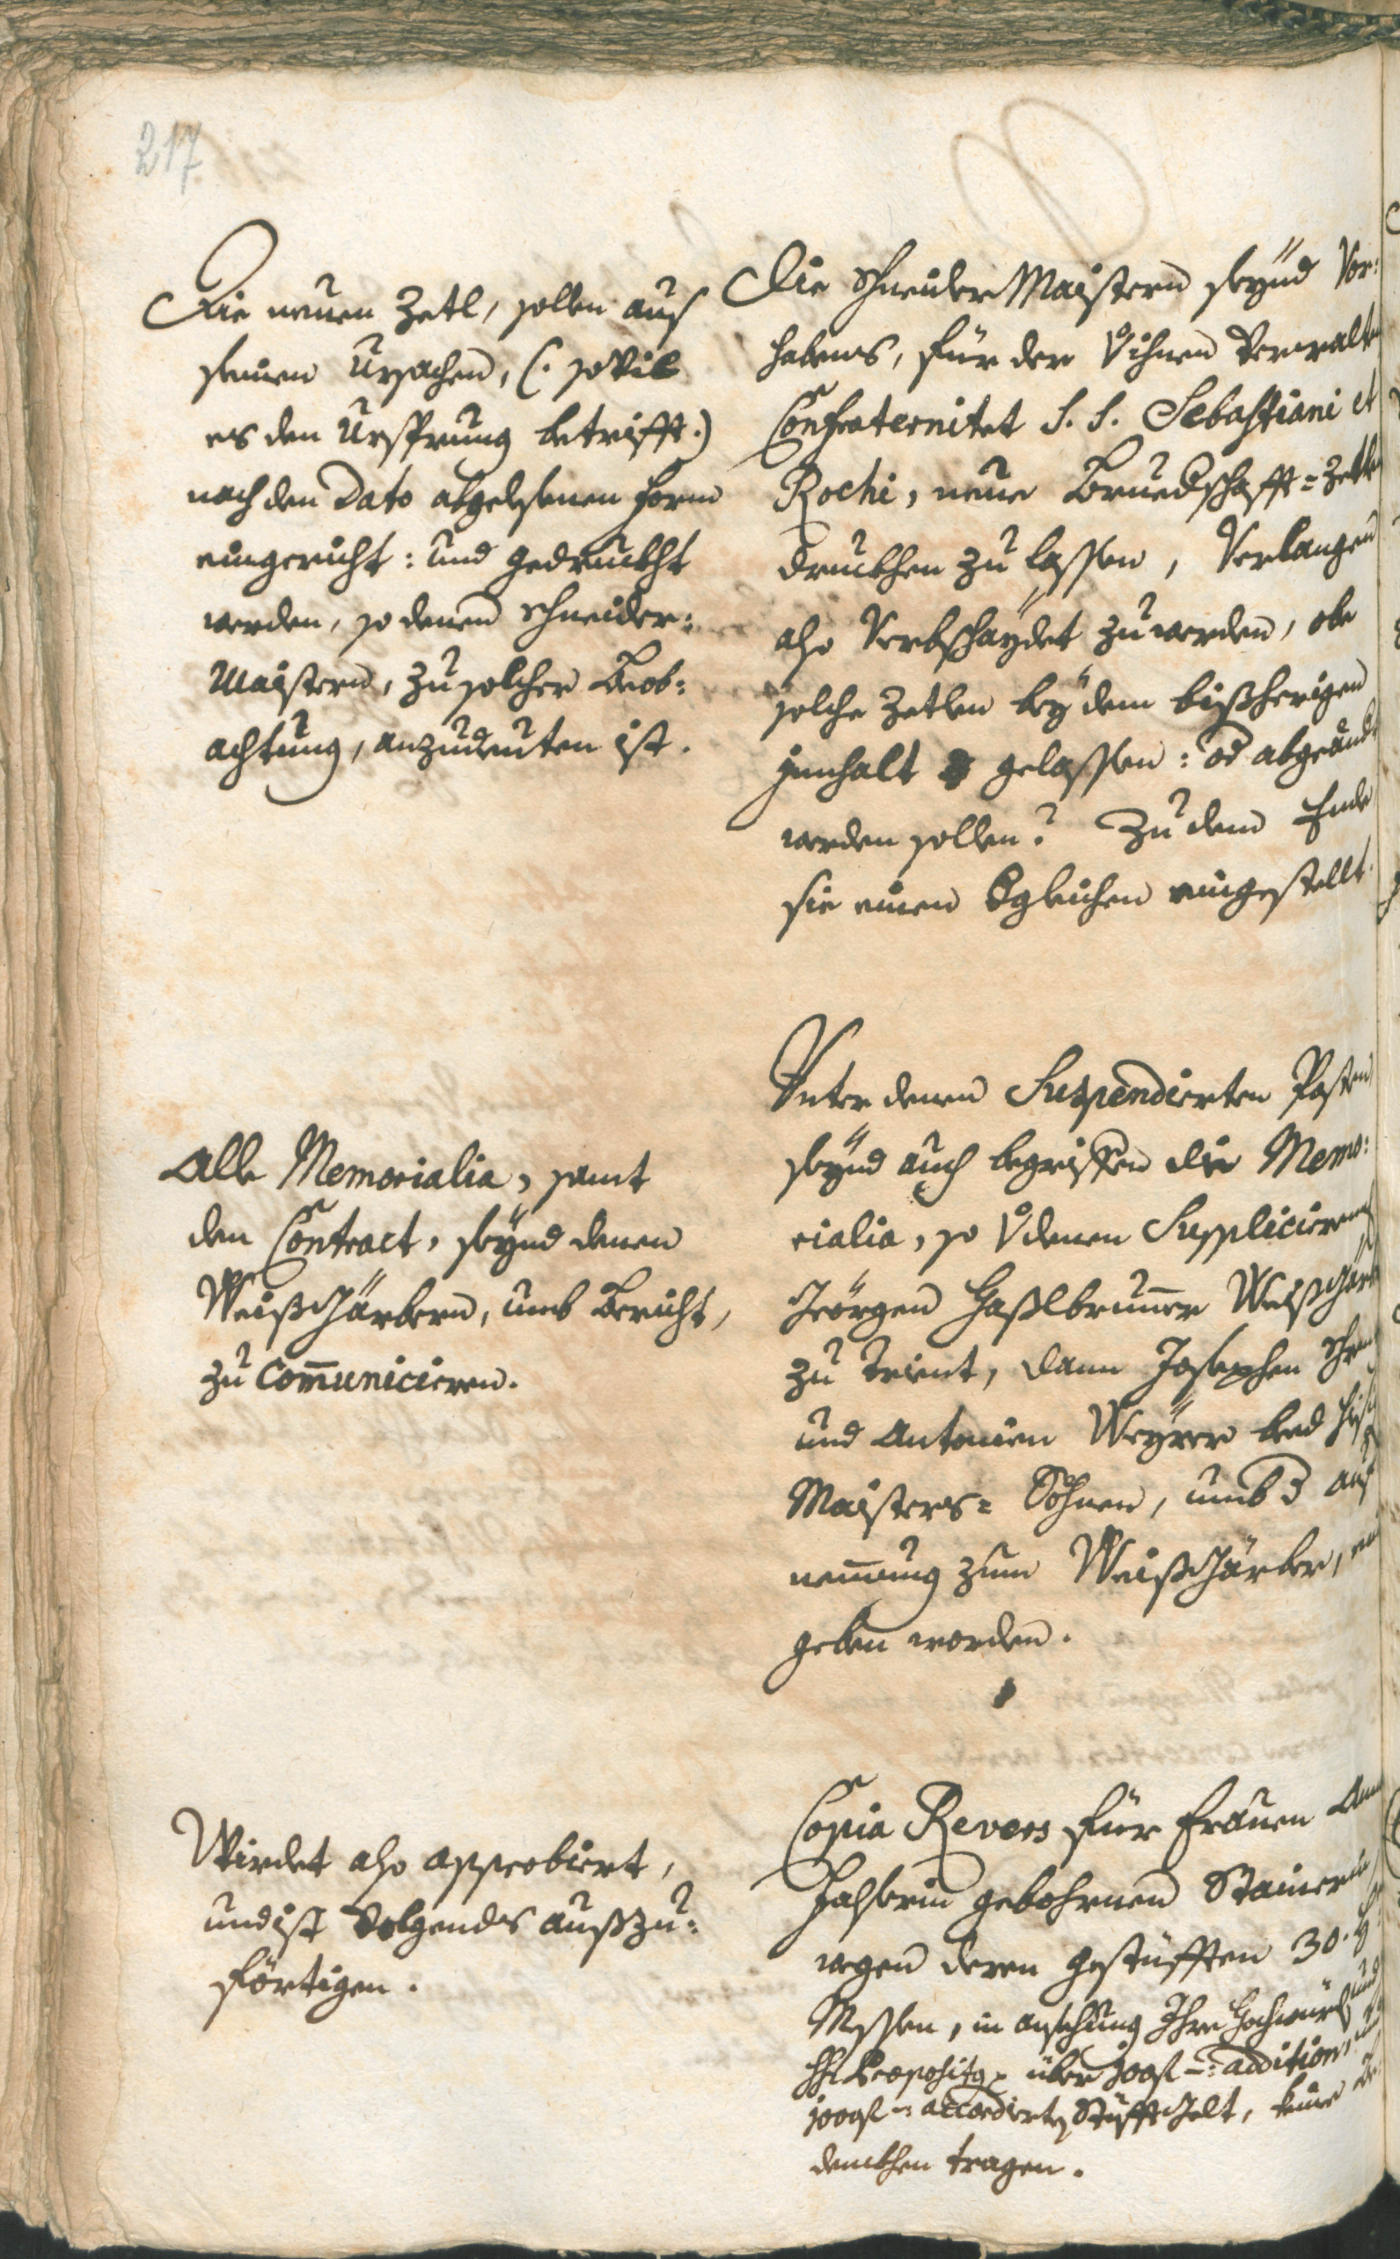 217
Die neuen Zetl, sollen aus
seinen Ursachen, (: sovil
es den Ursprung betrifft:)
nach den Dato abgelesenen Form
eingericht: und gedruckht
werden, so denen Schneider-
Maistern, zu solcher Beob-
achtung, anzudeuten ist.
Die Schneider Maistern seynd Vor-
habens, für der ihnen verwalte
Confraternitet S. S. Sebastiani et
Rochi, neue Bruedschafft-Zetl
druckhen zu lassen, Verlangen
also Verbschaydet zu werden, obe
solche Zetlen bey dem bißherigen
Innhalt gelassen: od abgeänd
werden sollen? Zu dem Ende
sie einen dgleichen eingestellt.
Alle Memorialia, samt
den Contract, seynd denen
Weißgärbern, umb Bericht,
zu Communicieren.
Unter denen Suspendierten Posten
seynd auch begriffen die Memo-
rialia, so v denen Supplicieren
Geörgen Haßlbrunner Weißgär
zu Trient, dann Josephen
und Antonien Weyrer bed
Maisters-Söhnen, umb d auf
nemmung zum Weißgärber,
geben worden.
Wirdet also approbiert,
und ist volgends außzu-
förtigen.
Copia Revers für Frauen
gebohrnen Stainerin
wegen deren gestüfften 30.
Messen, in ansehung Ihre Hochwürd
über 300f addition
1000f accordirten Stüfftgelt, keine
denckhen tragen.